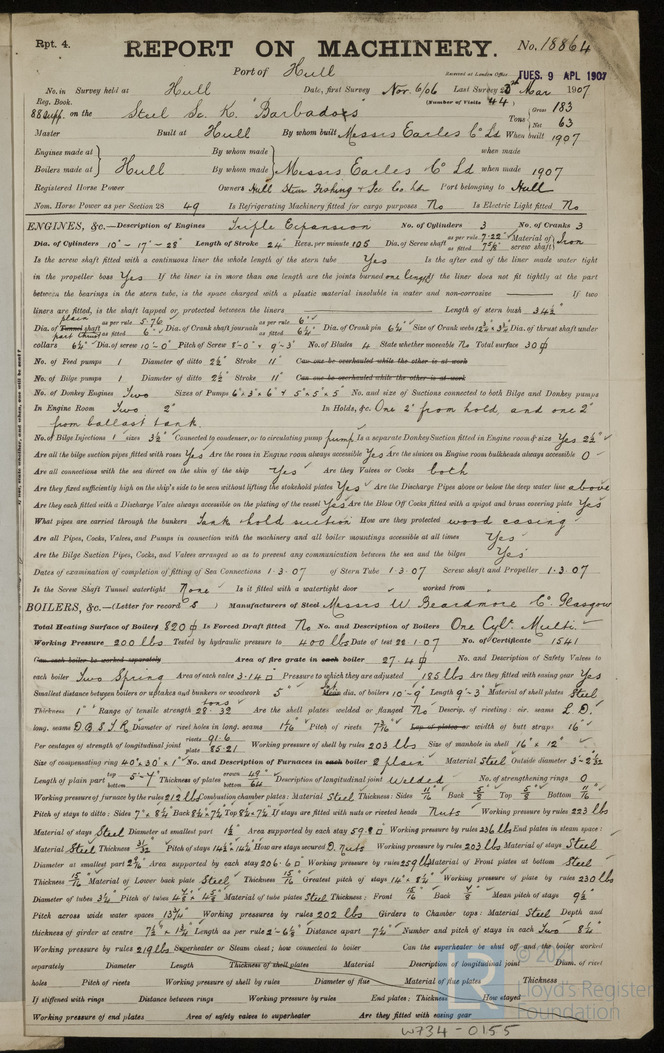 Rpt. 4.
REPORT ON MACHINERY. No. 18864
Port of Hull
Received at London Office TUES. 9 APL 1907
No. in Survey held at Hull Date, first Survey Nov. 6/06 Last Survey Mar 1907
Reg. Book. (Number of Visits 44)
88 supp. on the Steel Sc. K. Barbados Tons { Gross 183 Net 63
Master Built at Hull By whom built Messrs Earles Co Ld When built 1907
Engines made at By whom made when made
Boilers made at Hull By whom made Messrs Earles Co Ld when made 1907
Registered Horse Power Owners Hull Steam Fishing & Ice Co. Ld. Port belonging to Hull
Nom. Horse Power as per Section 28 49 Is Refrigerating Machinery fitted for cargo purposes No Is Electric Light fitted No
ENGINES, &c.—Description of Engines Triple Expansion No. of Cylinders 3 No. of Cranks 3
Dia. of Cylinders 10" - 17" - 28" Length of Stroke 24" Revs. per minute 105 Dia. of Screw shaft as per rule 7.22" as fitted 7 5/8" Material of screw shaft Iron
Is the screw shaft fitted with a continuous liner the whole length of the stern tube Yes Is the after end of the liner made water tight
in the propeller boss Yes If the liner is in more than one length are the joints burned one length If the liner does not fit tightly at the part
between the bearings in the stern tube, is the space charged with a plastic material insoluble in water and non-corrosive If two
liners are fitted, is the shaft lapped or protected between the liners Length of stern bush 34½"
Dia. of Tunnel shaft as per rule 5.76 as fitted 6" Dia. of Crank shaft journals as per rule 6" as fitted 6¼" Dia. of Crank pin 6¼" Size of Crank webs Dia. of thrust shaft under
collars 6¼" Dia. of screw 10'-0" Pitch of Screw 8'-0" & 9'-3" No. of Blades 4 State whether moveable No Total surface 30
No. of Feed pumps 1 Diameter of ditto 2½" Stroke 11" Can one be overhauled while the other is at work
No. of Bilge pumps 1 Diameter of ditto 2½" Stroke 11" Can one be overhauled while the other is at work
No. of Donkey Engines Two Sizes of Pumps 6" x 3" x 6" & 5" x 5" x 5" No. and size of Suctions connected to both Bilge and Donkey pumps
In Engine Room Two 2" In Holds, &c. One 2" from hold, and one 2"
from ballast tank.
No. of Bilge Injections 1 sizes 3½" Connected to condenser, or to circulating pump pump Is a separate Donkey Suction fitted in Engine room & size Yes 2½"
Are all the bilge suction pipes fitted with roses Yes Are the roses in Engine room always accessible Yes Are the sluices on Engine room bulkheads always accessible 0
Are all connections with the sea direct on the skin of the ship Yes Are they Valves or Cocks both
Are they fixed sufficiently high on the ship's side to be seen without lifting the stokehold plates Yes Are the Discharge Pipes above or below the deep water line above
Are they each fitted with a Discharge Valve always accessible on the plating of the vessel Yes Are the Blow Off Cocks fitted with a spigot and brass covering plate Yes
What pipes are carried through the bunkers Tank & hold suction How are they protected wood casing
Are all Pipes, Cocks, Valves, and Pumps in connection with the machinery and all boiler mountings accessible at all times Yes
Are the Bilge Suction Pipes, Cocks, and Valves arranged so as to prevent any communication between the sea and the bilges Yes
Dates of examination of completion of fitting of Sea Connections 1.3.07 of Stern Tube 1.3.07 Screw shaft and Propeller 1.3.07
Is the Screw Shaft Tunnel watertight None Is it fitted with a watertight door worked from
BOILERS, &c.—(Letter for record S) Manufacturers of Steel Messrs W. Beardmore Co. Glasgow
Total Heating Surface of Boilers 820 Is Forced Draft fitted No No. and Description of Boilers One Cyl. Multi
Working Pressure 200 lbs Tested by hydraulic pressure to 400 lbs Date of test 22.1.07 No. of Certificate 1541
Can each boiler be worked separately Area of fire grate in each boiler 27.4 No. and Description of Safety Valves to
each boiler Two Spring Area of each valve 3.14 Pressure to which they are adjusted 185 lbs Are they fitted with easing gear Yes
Smallest distance between boilers or uptakes and bunkers or woodwork 5" Mean dia. of boilers 10'-9" Length 9'-3" Material of shell plates Steel
Thickness 1" Range of tensile strength 28-32 tons Are the shell plates welded or flanged No Descrip. of riveting: cir. seams L.D.
long. seams D.B.S.T.R. Diameter of rivet holes in long. seams 1 1/16" Pitch of rivets 7 3/16" Lap of plates or width of butt straps 16"
Per centages of strength of longitudinal joint rivets 91.6 plate 85.21 Working pressure of shell by rules 203 lbs Size of manhole in shell 16" x 12"
Size of compensating ring 40" x 30" x 1" No. and Description of Furnaces in each boiler 2 plain Material Steel Outside diameter 3'-2 3/32
Length of plain part top 5'-7" bottom Thickness of plates crown 49/64 bottom Description of longitudinal joint Welded No. of strengthening rings 0
Working pressure of furnace by the rules 212 lbs Combustion chamber plates: Material Steel Thickness: Sides 11/16 Back 5/8 Top 5/8 Bottom 11/16
Pitch of stays to ditto: Sides 7" x 8½" Back 8½" x 7½" Top 8½" x 7½" If stays are fitted with nuts or riveted heads Nuts Working pressure by rules 223 lbs
Material of stays Steel Diameter at smallest part 1½" Area supported by each stay 59.8 Working pressure by rules 236 lbs End plates in steam space:
Material Steel Thickness 31/32 Pitch of stays 14½" x 14½" How are stays secured D. nuts Working pressure by rules 203 lbs Material of stays Steel
Diameter at smallest part Area supported by each stay 206.6 Working pressure by rules 259 lbs Material of Front plates at bottom Steel
Thickness 15/16 Material of Lower back plate Steel Thickness 15/16 Greatest pitch of stays 14" x 8½" Working pressure of plate by rules 230 lbs
Diameter of tubes 3½" Pitch of tubes Material of tube plates Steel Thickness: Front 15/16 Back ¾ Mean pitch of stays 9½"
Pitch across wide water spaces 13¾" Working pressures by rules 202 lbs Girders to Chamber tops: Material Steel Depth and
thickness of girder at centre 7½" x 1¾" Length as per rule 2'-6½" Distance apart 7½" Number and pitch of stays in each Two 8½"
Working pressure by rules 219 lbs Superheater or Steam chest; how connected to boiler Can the superheater be shut off and the boiler worked
separately Diameter Length Thickness of shell plates Material Description of longitudinal joint Diam. of rivet
holes Pitch of rivets Working pressure of shell by rules Diameter of flue Material of flue plates Thickness
If stiffened with rings Distance between rings Working pressure by rules End plates: Thickness How stayed
Working pressure of end plates Area of safety valves to superheater Are they fitted with easing gear
Lloyd's Register
Foundation
W734-0155